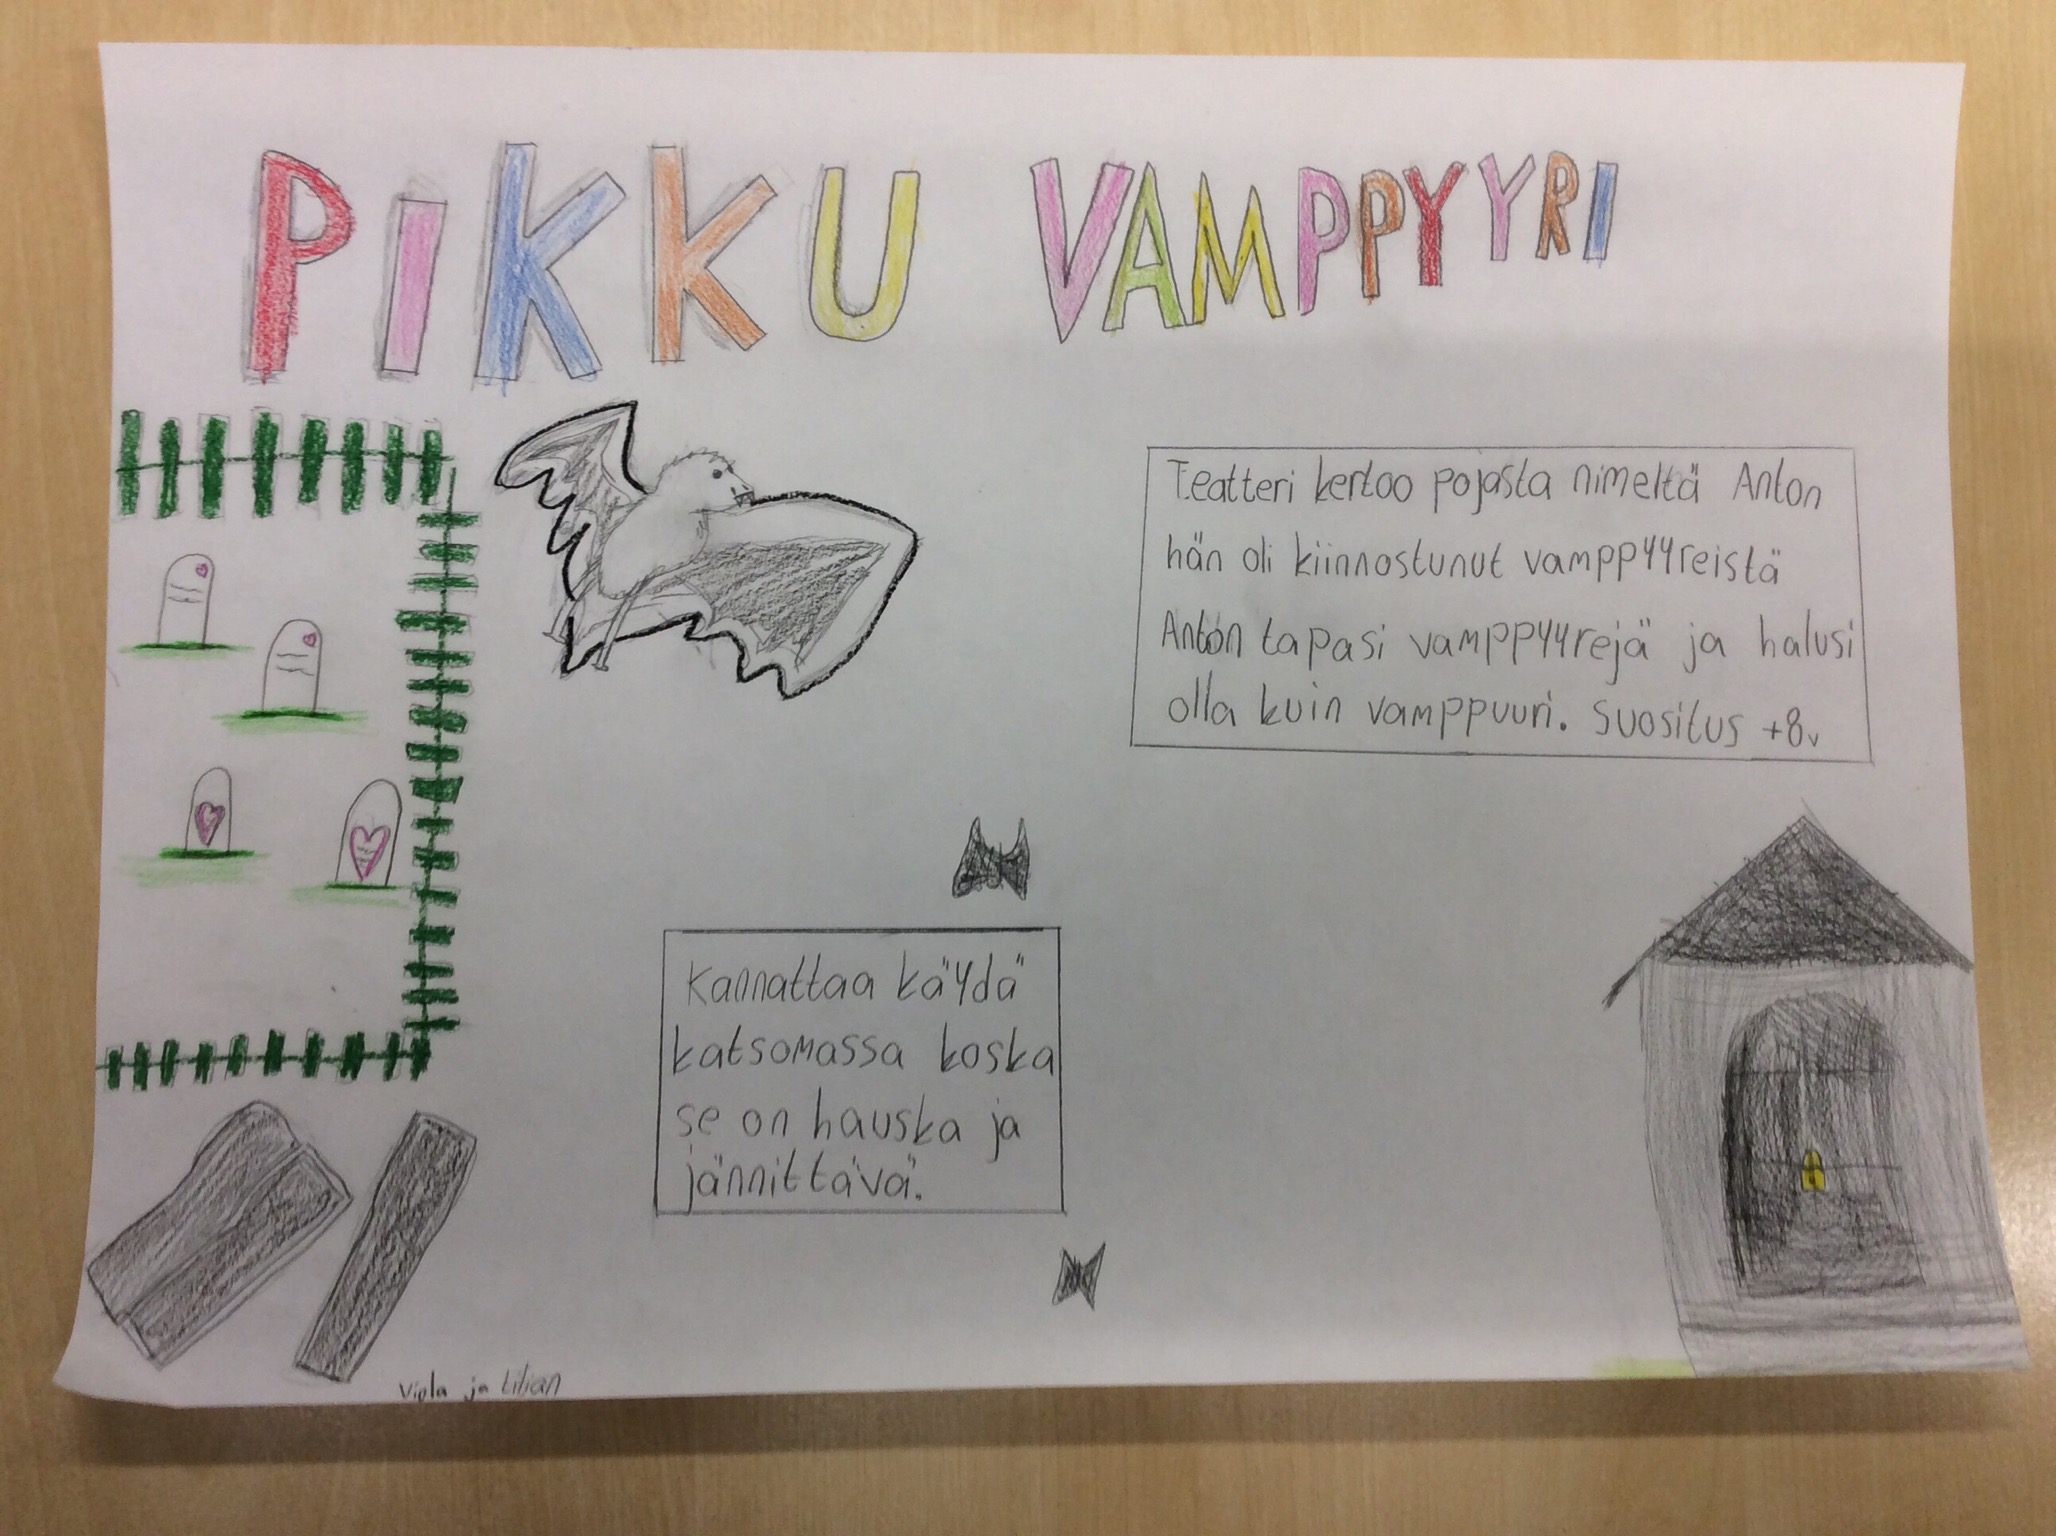 PIKKU VAMPPYYRI
Teatteri kertoo pojasta nimeltä Anton
hän oli kiinnostunut vamppyyreistä
Anton tapasi vamppyyrejä ja halusi
olla kuin vamppuuri. Suositus +8v
Kannattaa käydä
katsomassa koska
se on hauska ja
jännittävä.
Viola ja Lilian